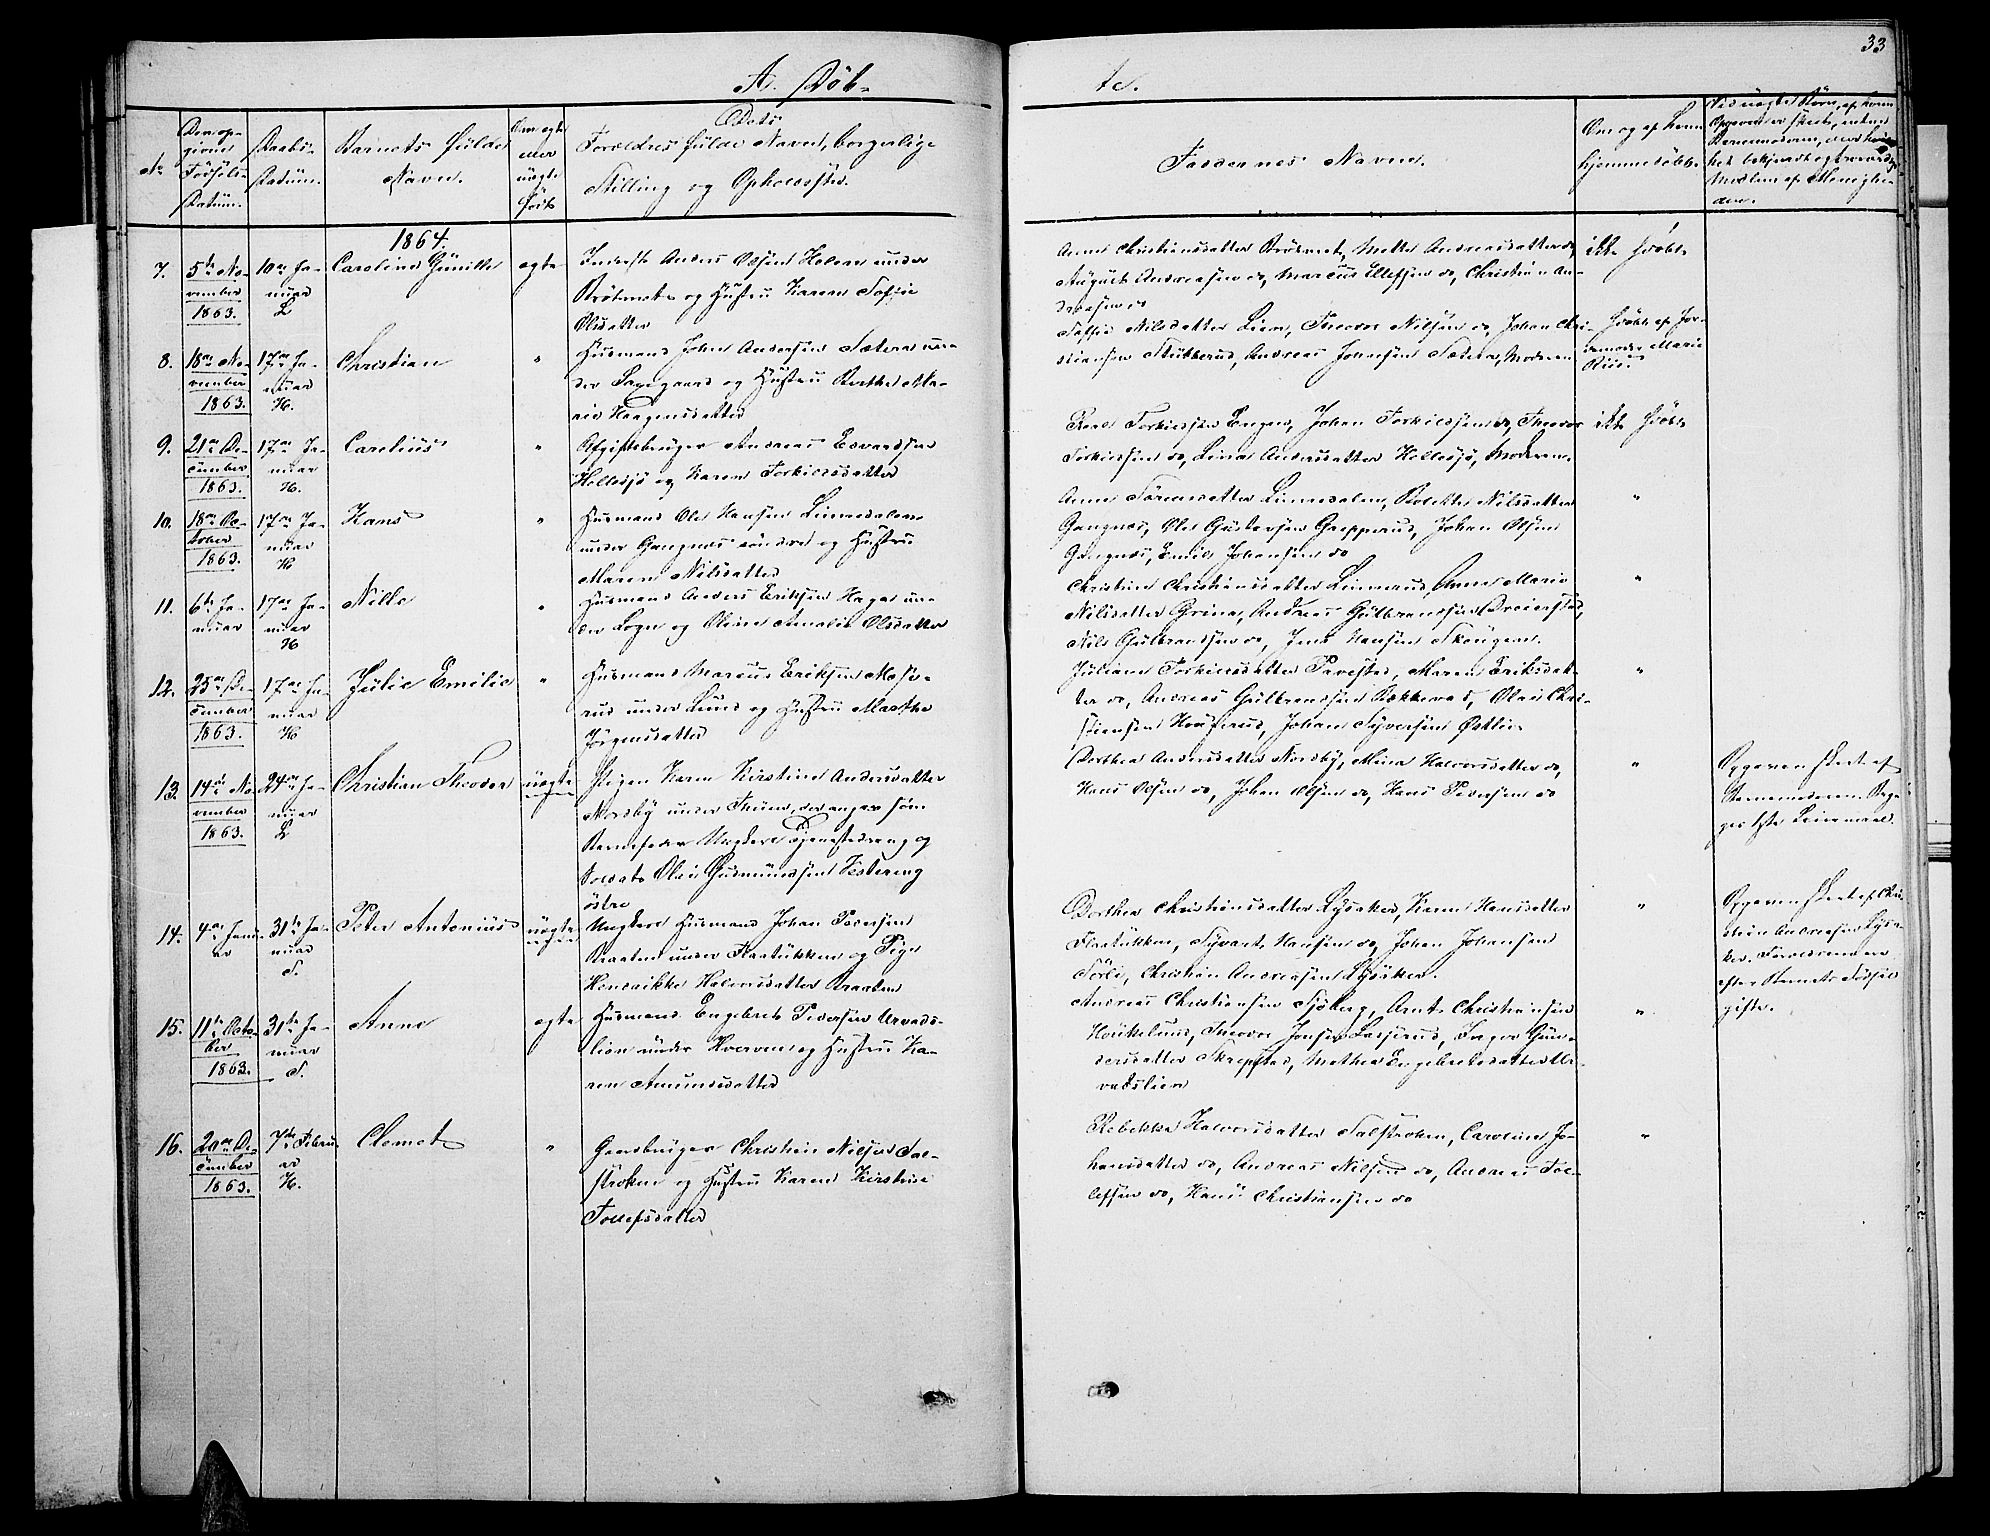 33
A. Döb-
te.
No
Den op-
givne
Födsels-
Datum.
Daabs-
Datum.
Barnets fulde
Navn.
Om ægte
eller
uægte
födt
Dets
Forældres fulde Navne, borgerlige
Stilling og Opholdssted.
Faddernes Navne.
Om og af hvem
hjemmedöbt
Ved uægte Börn, af hvem
Opgaven er skeet, enten
Barnemoderen, eller
dere.
1864.
7.
5te No-
vember
1863.
10de Ja-
nuar
L
Caroline Gunilla
ægte
Inderst Anders Olsen Holen under
Bröttmet og Hustru Karen Sofie
Olsdatter
Anne Christiansdatter Brödtmet, Mette Andreasdatter do,
August Andreassen do, Marcus Ellefsen do, Christian An-
dreasen do
ikke hjdöbt
8.
18de No-
vember
1863.
17de Ja-
nuar
H.
Christian
"
Husmand Johan Andersen Sætern un-
der Saxegaard og Hustru Berthe Ma-
rie Haagensdatter
Sofie Nilsdatter Lien, Theodor Nilsen do, Johan Chri-
stiansen Stubberud, Andreas Johnsen Sætern, Moderen
hjdöbt af Jor-
demoder Marie
Riis.
9.
21de De-
cember
1863.
17de Ja-
nuar
H.
Carelius
"
Afgiftsbruger Andreas Edvardsen
Hollesjö og Karen Torkildsdatter
Karl Torkildsen Engen, Johan Torkildsen do, Theodor
Torkildsen do, Lina Andersdatter Hollesjö, Moderen
ikke hjdöbt
10.
18de Oc-
tober
1863.
17de Ja-
nuar
H
Hans
"
Husmand Ole Hansen Linnedalen
under Gangnæs söndre og Hustru
Maren Nilsdatter
Anne Sörensdatter Linnedalen, Bolette Nilsdatter
Gangnæs, Ole Gustavsen Grepperud, Johan Olsen
Gangnæs, Emil Johansen do
"
11.
6te Ja-
nuar
17de Ja-
nuar
H
Nille
"
Husmand Anders Eriksen Hagen un-
der Sogn og Oline Amalie Olsdatter
Christine Christiansdatter Linnerud, Anne Marie
Nilsdatter Grina, Andreas Gulbrandsen Dreierstad,
Nils Gulbrandsen do, Jens Hansen Skougen.
"
12.
25de De-
cember
1863.
17de Ja-
nuar
H
Julie Emilie
"
Husmand Marcus Eriksen Mose-
rud under Lund og Hustru Marthe
Jörgensdatter
Juliane Torkildsdatter Pavestad, Maren Eriksdat-
ter do, Andreas Gulbrandsen Bækkevad, Olai Chri-
stiansen Houserud, Johan Syversen Östlie
"
13.
14de No-
vember
1863.
24de Ja-
nuar
L
Christian Theodor
uægte
Pigen Karen Kirstine Andersdatter
Norsby under Thune, der angav som
Barnefader Ungkarl Tjenestedreng og
Soldat Olai Gudmundsen Kestering
östre
Dorthea Andersdatter Norsby, Mina Halvorsdatter do,
Hans Olsen do, Johan Olsen do, Hans Pedersen do
"
Opgaven skeet af
Barnemoderen. Beg-
ges 1ste Leiermaal.
14.
4de Janu-
ar
31te Ja-
nuar
S.
Peter Antonius
uægte
Ungkarl Husmand Johan Pedersen
Braaten under Flaatukken og Pige
Hendrikke Halvorsdatter Braaten
Dorthea Christiansdatter Lysaker, Karen Hansdatter
Flaatukken, Syvert Hansen do, Johan Johansen
Sörli, Christian Andreasen Lysaker.
"
Opgaven skeet af Chri-
stian Andreasen Lysa-
ker. Forældrene ere
efter Barnets Födsel
gifte.
15.
11te Octo-
ber
1863.
31te Ja-
nuar
S.
Anne
ægte
Husmand Engebret Pedersen Urvads-
lien under Hverven og Hustru Ka-
ren Amundsdatter
Andreas Christiansen Sjöberg, Arnt Christiansen
Houkelund, Theodor Jensen Lasserud, Inger Gun-
dersdatter Skrepstad, Mathea Engebretsdatter Ur-
vadslien
"
16.
20de De-
cember
1863.
7de Febru-
ar
H.
Clemet
"
Gaardbruger Christian Nilsen Sal-
stroken og Hustru Karen Kirstine
Tollefsdatter
Rebekka Halvorsdatter Salstroken, Caroline Jo-
hansdatter do, Andreas Nilsen do, Andreas Tol-
lefsen do, Hans Christiansen do
"